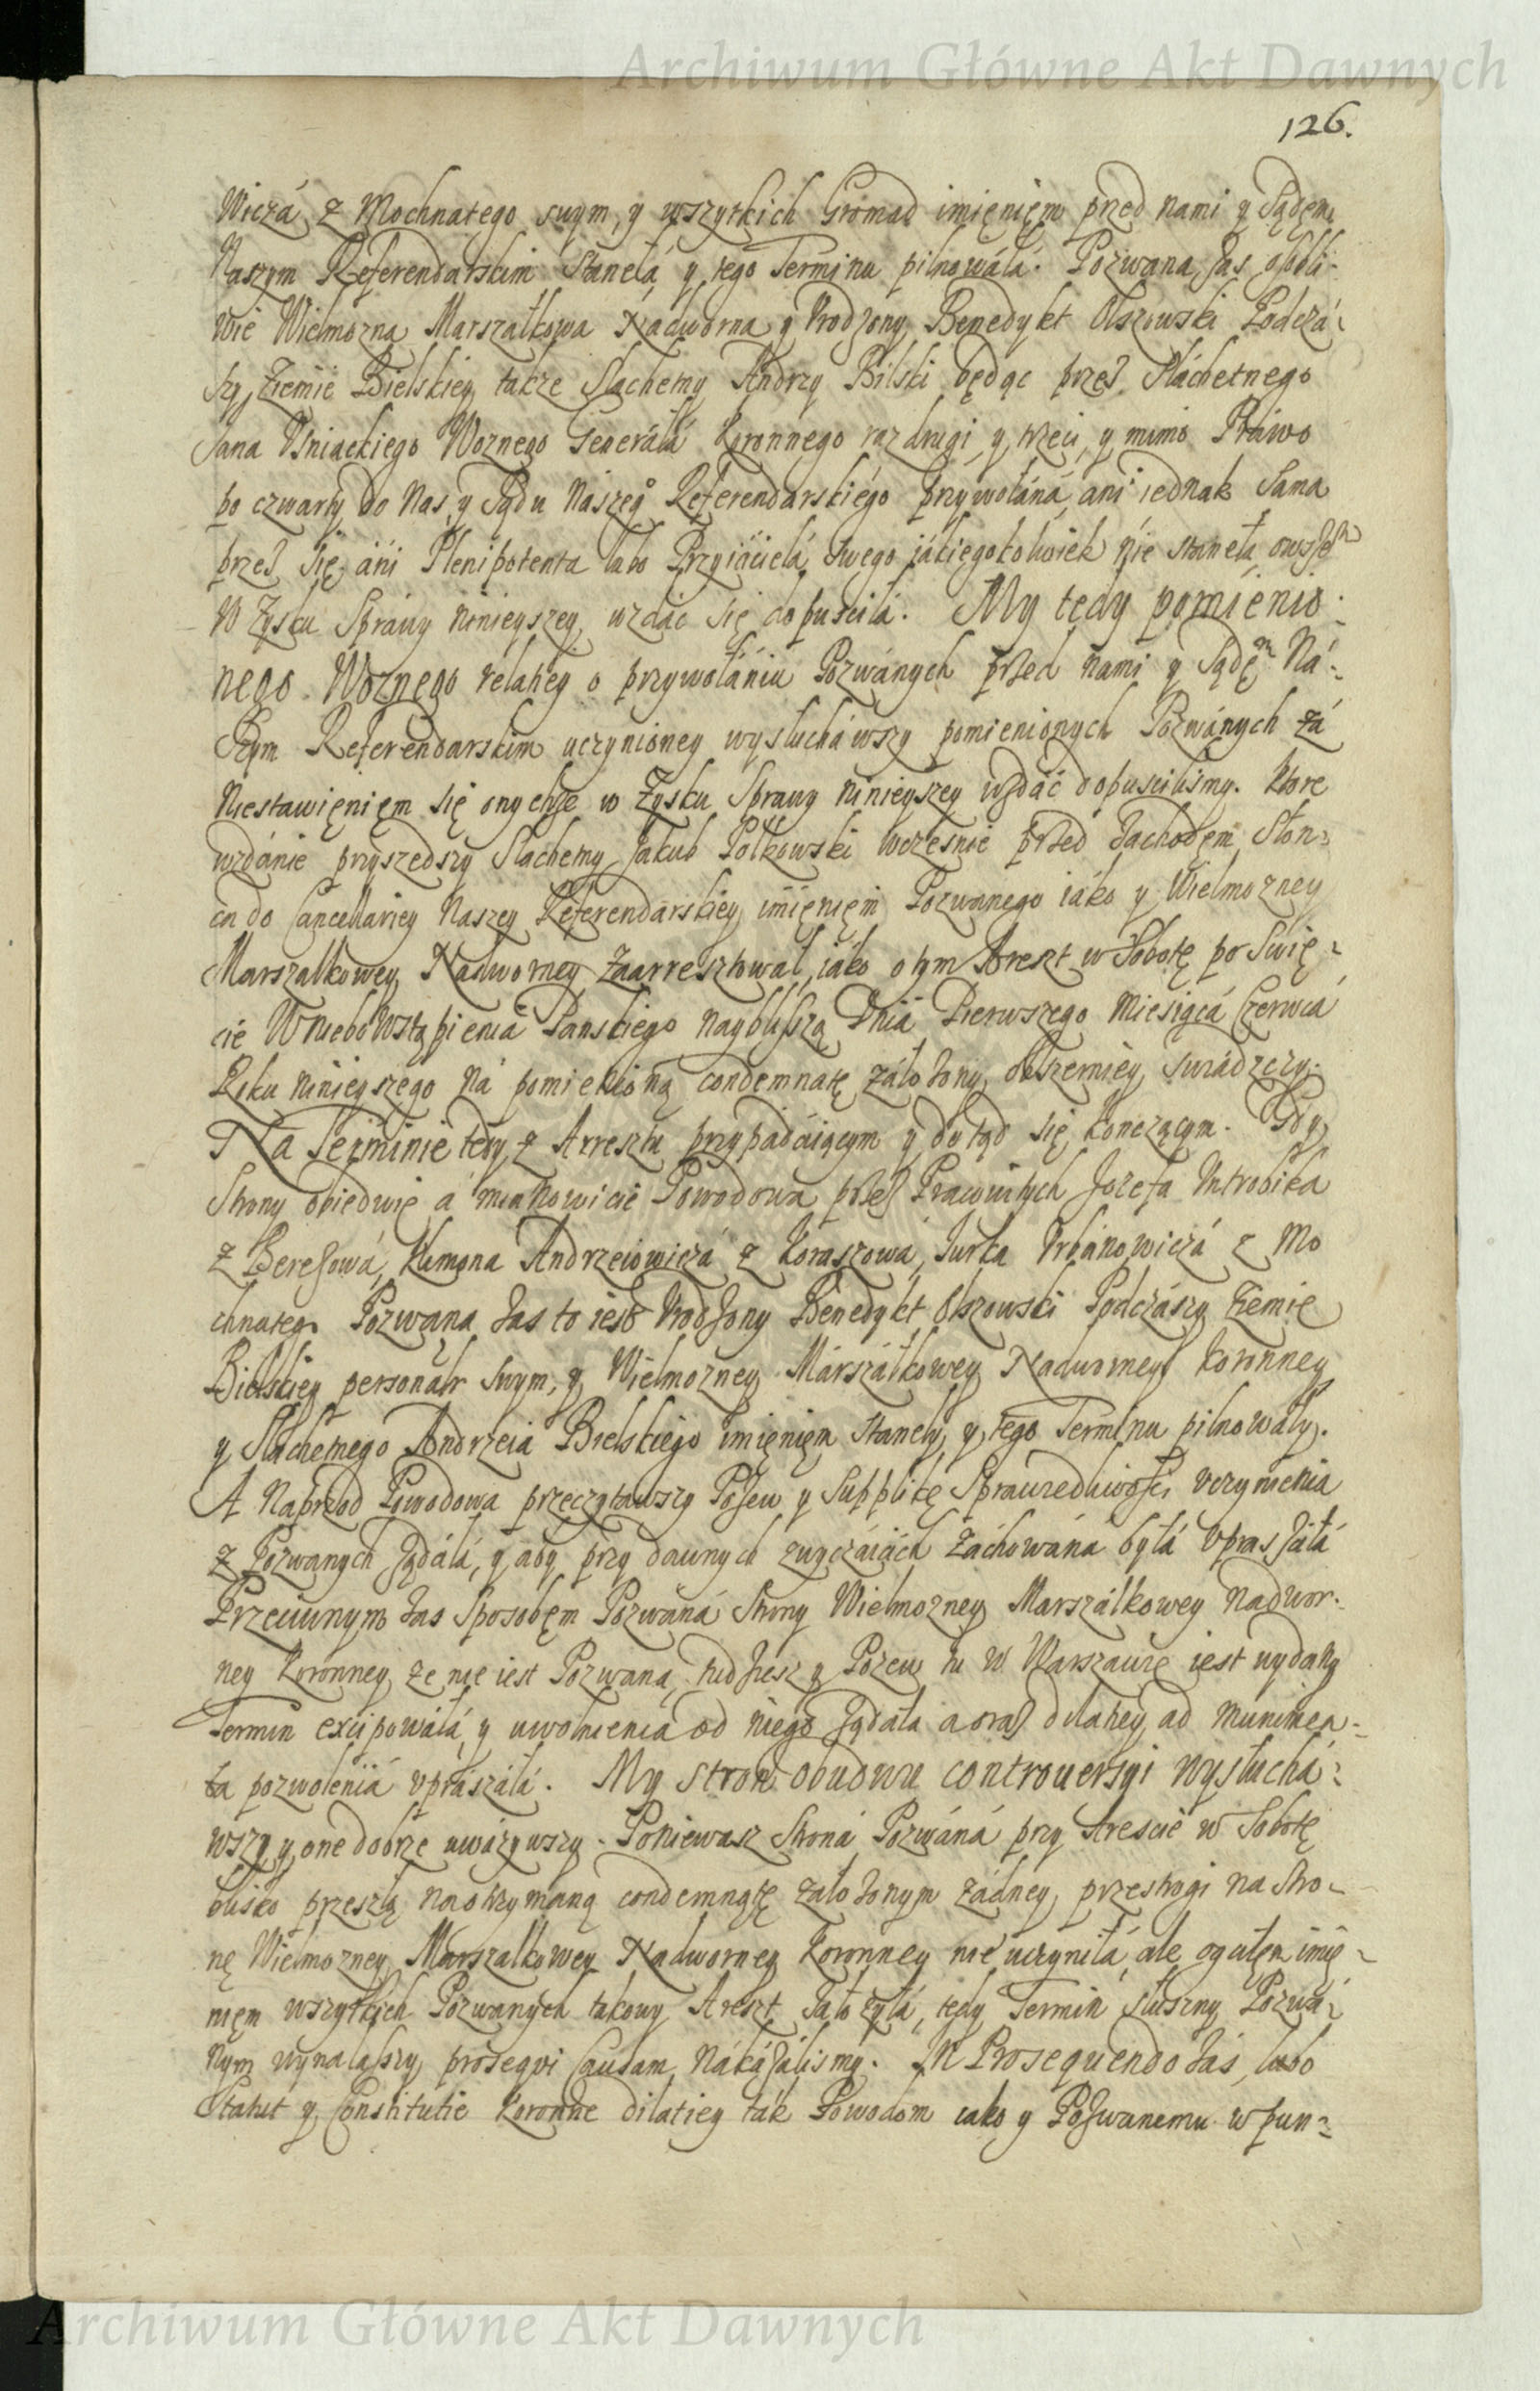 Archiwum Główne Akt Dawnych
126.
Wicza z Mochnatego swym, y wszytkich Gromad imięnięm przed nami y Sądęm
Naszym Referendarskim Stanęła y tego Terminu pilnowáłá. Pozwana zas osobli-
wie Wielmozna Marszałkowa Nadworna y Vrodzony Benedykt Olszowski Podczá-
szy Ziemie Bielskiey także Slachetny Andrzy Bilski będąc przez Sláchetnego
Jana Vsniackiego Woznego Generáłá Koronnego raz drugi, y trzeci, y mimo Práwo
po czwarty do Nas y Sądu Naszego Referendarskiego przywołáná, ani iednak Sama
przez się ani Plenipotenta lubo Przyiácielá swego jakiegokolwiek nie stanęła owszem
W Zysku Spráwy ninieyszey wzdáć się dopuściłá. My tedy pomienio-
nego Woznego relatiey o przywołániu Pozwánych przed nami y Sądem Ná-
szym Referendarskim uczynioney wysłucháwszy pomienionych Pozwánych zá
niestawięnięm się onychze w Zysku Sprawy ninieyszey wzdáć dopuscilismy. Ktore
wzdánie przyszedszy Slachetny Jakub Połkowski wczesnie przed Zachodęm Słon-
ca do Cancellariey Naszey Referendarskiey imięnięm Pozwanego iáko y Wielmozney
Marszałkowey Nadworney Zaarresztował, iáko o tym Areszt w Sobotę po Swię-
cie Wniebowstąpienia Panskiego naybliszą Dniá Pierwszego Miesiącá Czerwcá
Roku ninieyszego ná pomienioną condemnatę záłozony obszerniey swiádczy.
Na Terminie tedy z Arresztu przypádáiącym y dotąd się konczącym. Gdy
Strony obiedwie á mianowicie Powodowa przez Pracowitych Jozefa
z Berezowá, Klimona Andrzeiowiczá z Koraszowá, Jurka Vrbánowiczá z Mo
chnatego Pozwana zas to iest Vrodzony Benedykt Olszowski Podczászy Ziemie
Bielskiey personálr swym, y Wielmozney Márszáłkowey Nadworney Koronney
y Slachetnego Andrzeia Bielskiego imięnięm stanęły y tego Terminu pilnowały.
A Naprzod Powodowa przeczytawszy Pozew y Supplikę Sprawiedliwości vczynienia
z Pozwanych ządáłá, y aby przy dawnych zwyczáiách záchowána byłá vpraszáłá
Przeciwnym zas Sposobęm Pozwáná Strony Wielmozney Marszáłkowey Nadwor-
ney Koronney, ze nie iest Pozwaną, tudziesz y Pozew tu w Warszawie iest wydany
Termin excipowáłá, y uwolnienia od niego ządáła a oraz dilatiey ad munimen-
ta pozwoleniá vprászáłá. My stron obudwu controuersyi wysłuchá-
wszy y one dobrze uwázywszy. Poniewasz Stroná Pozwáná przy Areście w Sobotę
blisko przeszłą na otrzymaną condemnatę záłozonym zádney przestrogi na stro-
nę Wielmozney Marszałkowey Nadworney Koronney nie uczyniłá, ale ogułem imię-
nięm wszytkich Pozwanych takowy Areszt Záłozyłá, tedy Termin słuszny Pozwá-
nym wynalaszy proseqvi Causam nákázálismy. In Prosequendo Zás, lubo
Statut y Constitutie Koronne dilatiey ták Powodom iako y Pozwanemu w pun-
Archiwum Główne Akt Dawnych